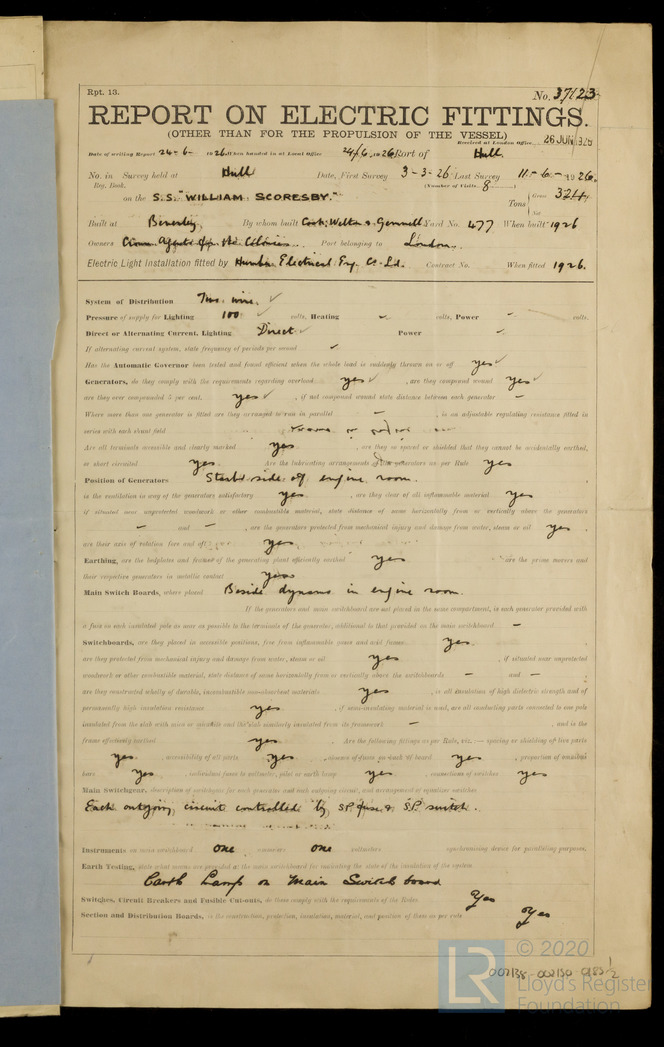 Rpt. 13.
No. 37123
REPORT ON ELECTRIC FITTINGS.
(OTHER THAN FOR THE PROPULSION OF THE VESSEL)
Received at London Office 26 JUN 1926
Date of writing Report 24-6-1926 When handed in at Local Office 24/6/1926 Port of Hull
No. in Survey held at Hull Date, First Survey 3-3-26 Last Survey 11-6-1926
Reg. Book. (Number of Visits 8)
on the S.S. "WILLIAM SCORESBY." Tons Gross 324
Net
Built at Beverley By whom built Cook, Welton & Gemmell Yard No. 477 When built 1926
Owners Crown Agents for the Colonies Port belonging to London
Electric Light Installation fitted by Humber Electrical Eng. Co. Ld. Contract No. When fitted 1926.
System of Distribution Two wire
Pressure of supply for Lighting 100 volts, Heating volts, Power volts.
Direct or Alternating Current, Lighting Direct Power
If alternating current system, state frequency of periods per second
Has the Automatic Governor been tested and found efficient when the whole load is suddenly thrown on or off yes
Generators, do they comply with the requirements regarding overload yes , are they compound wound yes
are they over compounded 5 per cent. yes , if not compound wound state distance between each generator –
Where more than one generator is fitted are they arranged to run in parallel – , is an adjustable regulating resistance fitted in
series with each shunt field
Are all terminals accessible and clearly marked yes , are they so spaced or shielded that they cannot be accidentally earthed,
or short circuited yes Are the lubricating arrangements of the generators as per Rule yes
Position of Generators Starbd side of engine room.
is the ventilation in way of the generators satisfactory yes , are they clear of all inflammable material yes
if situated near unprotected woodwork or other combustible material, state distance of same horizontally from or vertically above the generators
– and – , are the generators protected from mechanical injury and damage from water, steam or oil yes
are their axis of rotation fore and aft yes
Earthing, are the bedplates and frames of the generating plant efficiently earthed yes are the prime movers and
their respective generators in metallic contact yes
Main Switch Boards, where placed Beside dynamo in engine room.
If the generators and main switchboard are not placed in the same compartment, is each generator provided with
a fuse on each insulated pole as near as possible to the terminals of the generator, additional to that provided on the main switchboard –
Switchboards, are they placed in accessible positions, free from inflammable gases and acid fumes yes
are they protected from mechanical injury and damage from water, steam or oil yes , if situated near unprotected
woodwork or other combustible material, state distance of same horizontally from or vertically above the switchboards – and –
are they constructed wholly of durable, incombustible non-absorbent materials yes , is all insulation of high dielectric strength and of
permanently high insulation resistance yes , if semi-insulating material is used, are all conducting parts connected to one pole
insulated from the slab with mica or micanite and the slab similarly insulated from its framework – , and is the
frame effectively earthed yes Are the following fittings as per Rule, viz. — spacing or shielding of live parts
yes , accessibility of all parts yes , absence of fuses on back of board yes , proportion of omnibus
bars yes , individual fuses to voltmeter, pilot or earth lamp yes , connections of switches yes
Main Switchgear, description of switchgear for each generator and each outgoing circuit, and arrangement of equalizer switches
Each outgoing circuit controlled by S.P. fuse & S.P. switch.
Instruments on main switchboard one ammeters one voltmeters synchronising device for paralleling purposes.
Earth Testing, state what means are provided at the main switchboard for indicating the state of the insulation of the system
Earth Lamps on Main Switch board
Switches, Circuit Breakers and Fusible Cut-outs, do these comply with the requirements of the Rules Yes
Section and Distribution Boards, is the construction, protection, insulation, material, and position of these as per rule Yes
© 2020
LR Lloyd's Register
Foundation
002138-002150 0183 1/2